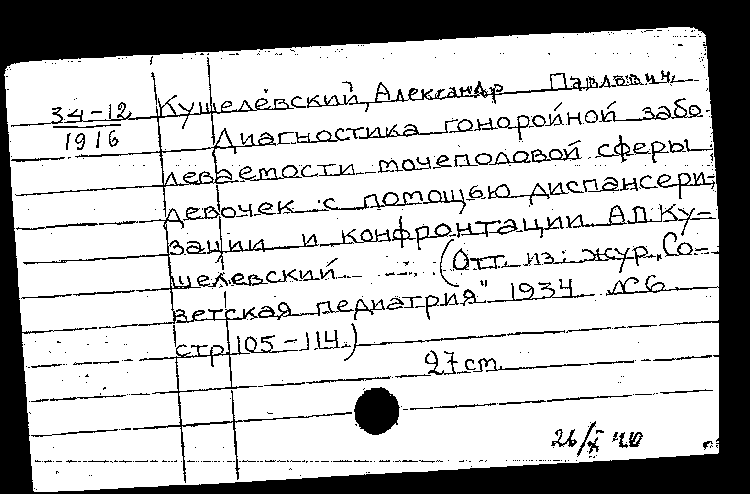 34-12
1916
Кушелевский, Александр Павлович
Диагностика гоноройной забо
леваемости мочеполовой сферы
девочек с помощью диспансери-
зации и конфронтации А.П. Ку-
шелевский (Отт. из: жур. „Со-
ветская педиатрия" 1934 №6
стр. 105-114.)
27 cm.
26/X 40